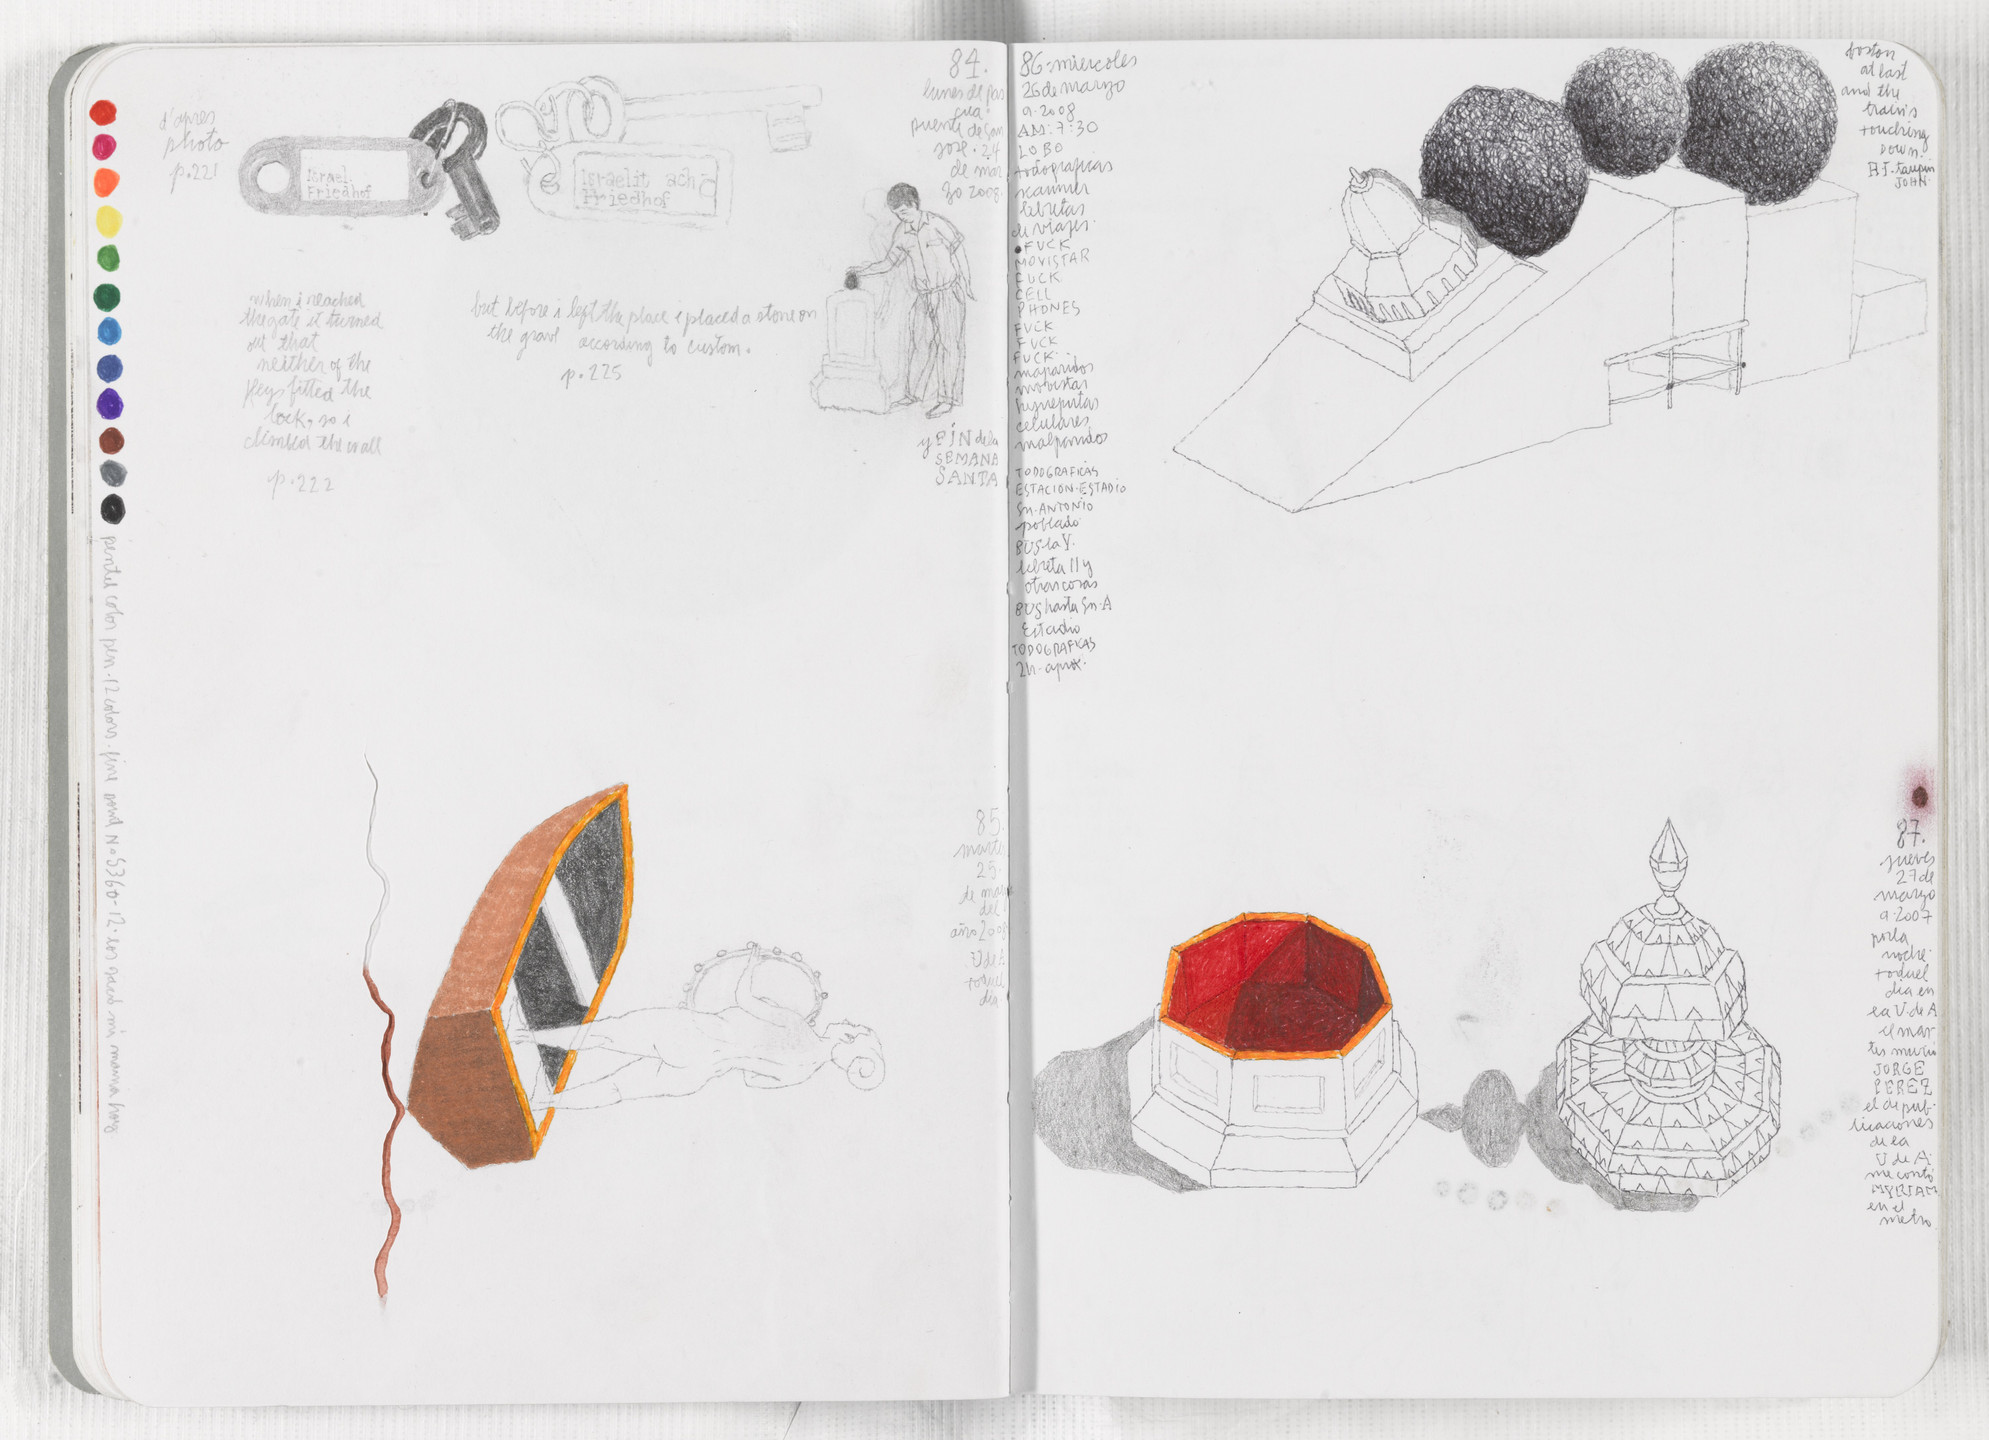 d'apres
photo
p.221
Israel.
Friedhof
Israelit ach
Friedhof
when i reached
the gate it turned
out that
neither of the
keys fitted the
lock, so i
climbed the wall
p.222
but before i left the place i placed a stone on
the grave according to custom.
p.225
84.
lunes de pas
cua.
puente de San
Jose. 24
de mar
zo 2008.
y FIN de la
SEMANA
SANTA
pentel color pen. 12 colors. fine point No S360-12. los
mi mama hoy
85.
martes
25.
de marzo
del
año 2008
U de A
todo el
dia
86. miercoles
26 de marzo
a. 2008
AM: 7:30
LOBO
todograficas
scanner
libretas
de viajes.
FUCK
MOVISTAR
FUCK
CELL
PHONES
FUCK
FUCK
FUCK.
malparidos
movistar
hijueputas
celulares
malparidos
TODOGRAFICAS
ESTACION. ESTADIO
Sn. ANTONIO
poblado
BUS la Y.
libreta 11 y
otras cosas
BUS hasta Sn. A
Estadio
TODOGRAFICAS
2h. aprox.
boston
at last
and the
train's
touching
DOWN.
B.J. taupin
JOHN.
87.
jueves
27 de
marzo
a. 2007
por la
noche.
todo el
dia en
la U de A
el mar
tes murio
JORGE
PEREZ
el de pub-
licaciones
de la
U de A.
me contó
MYRIAM
en el
metro.